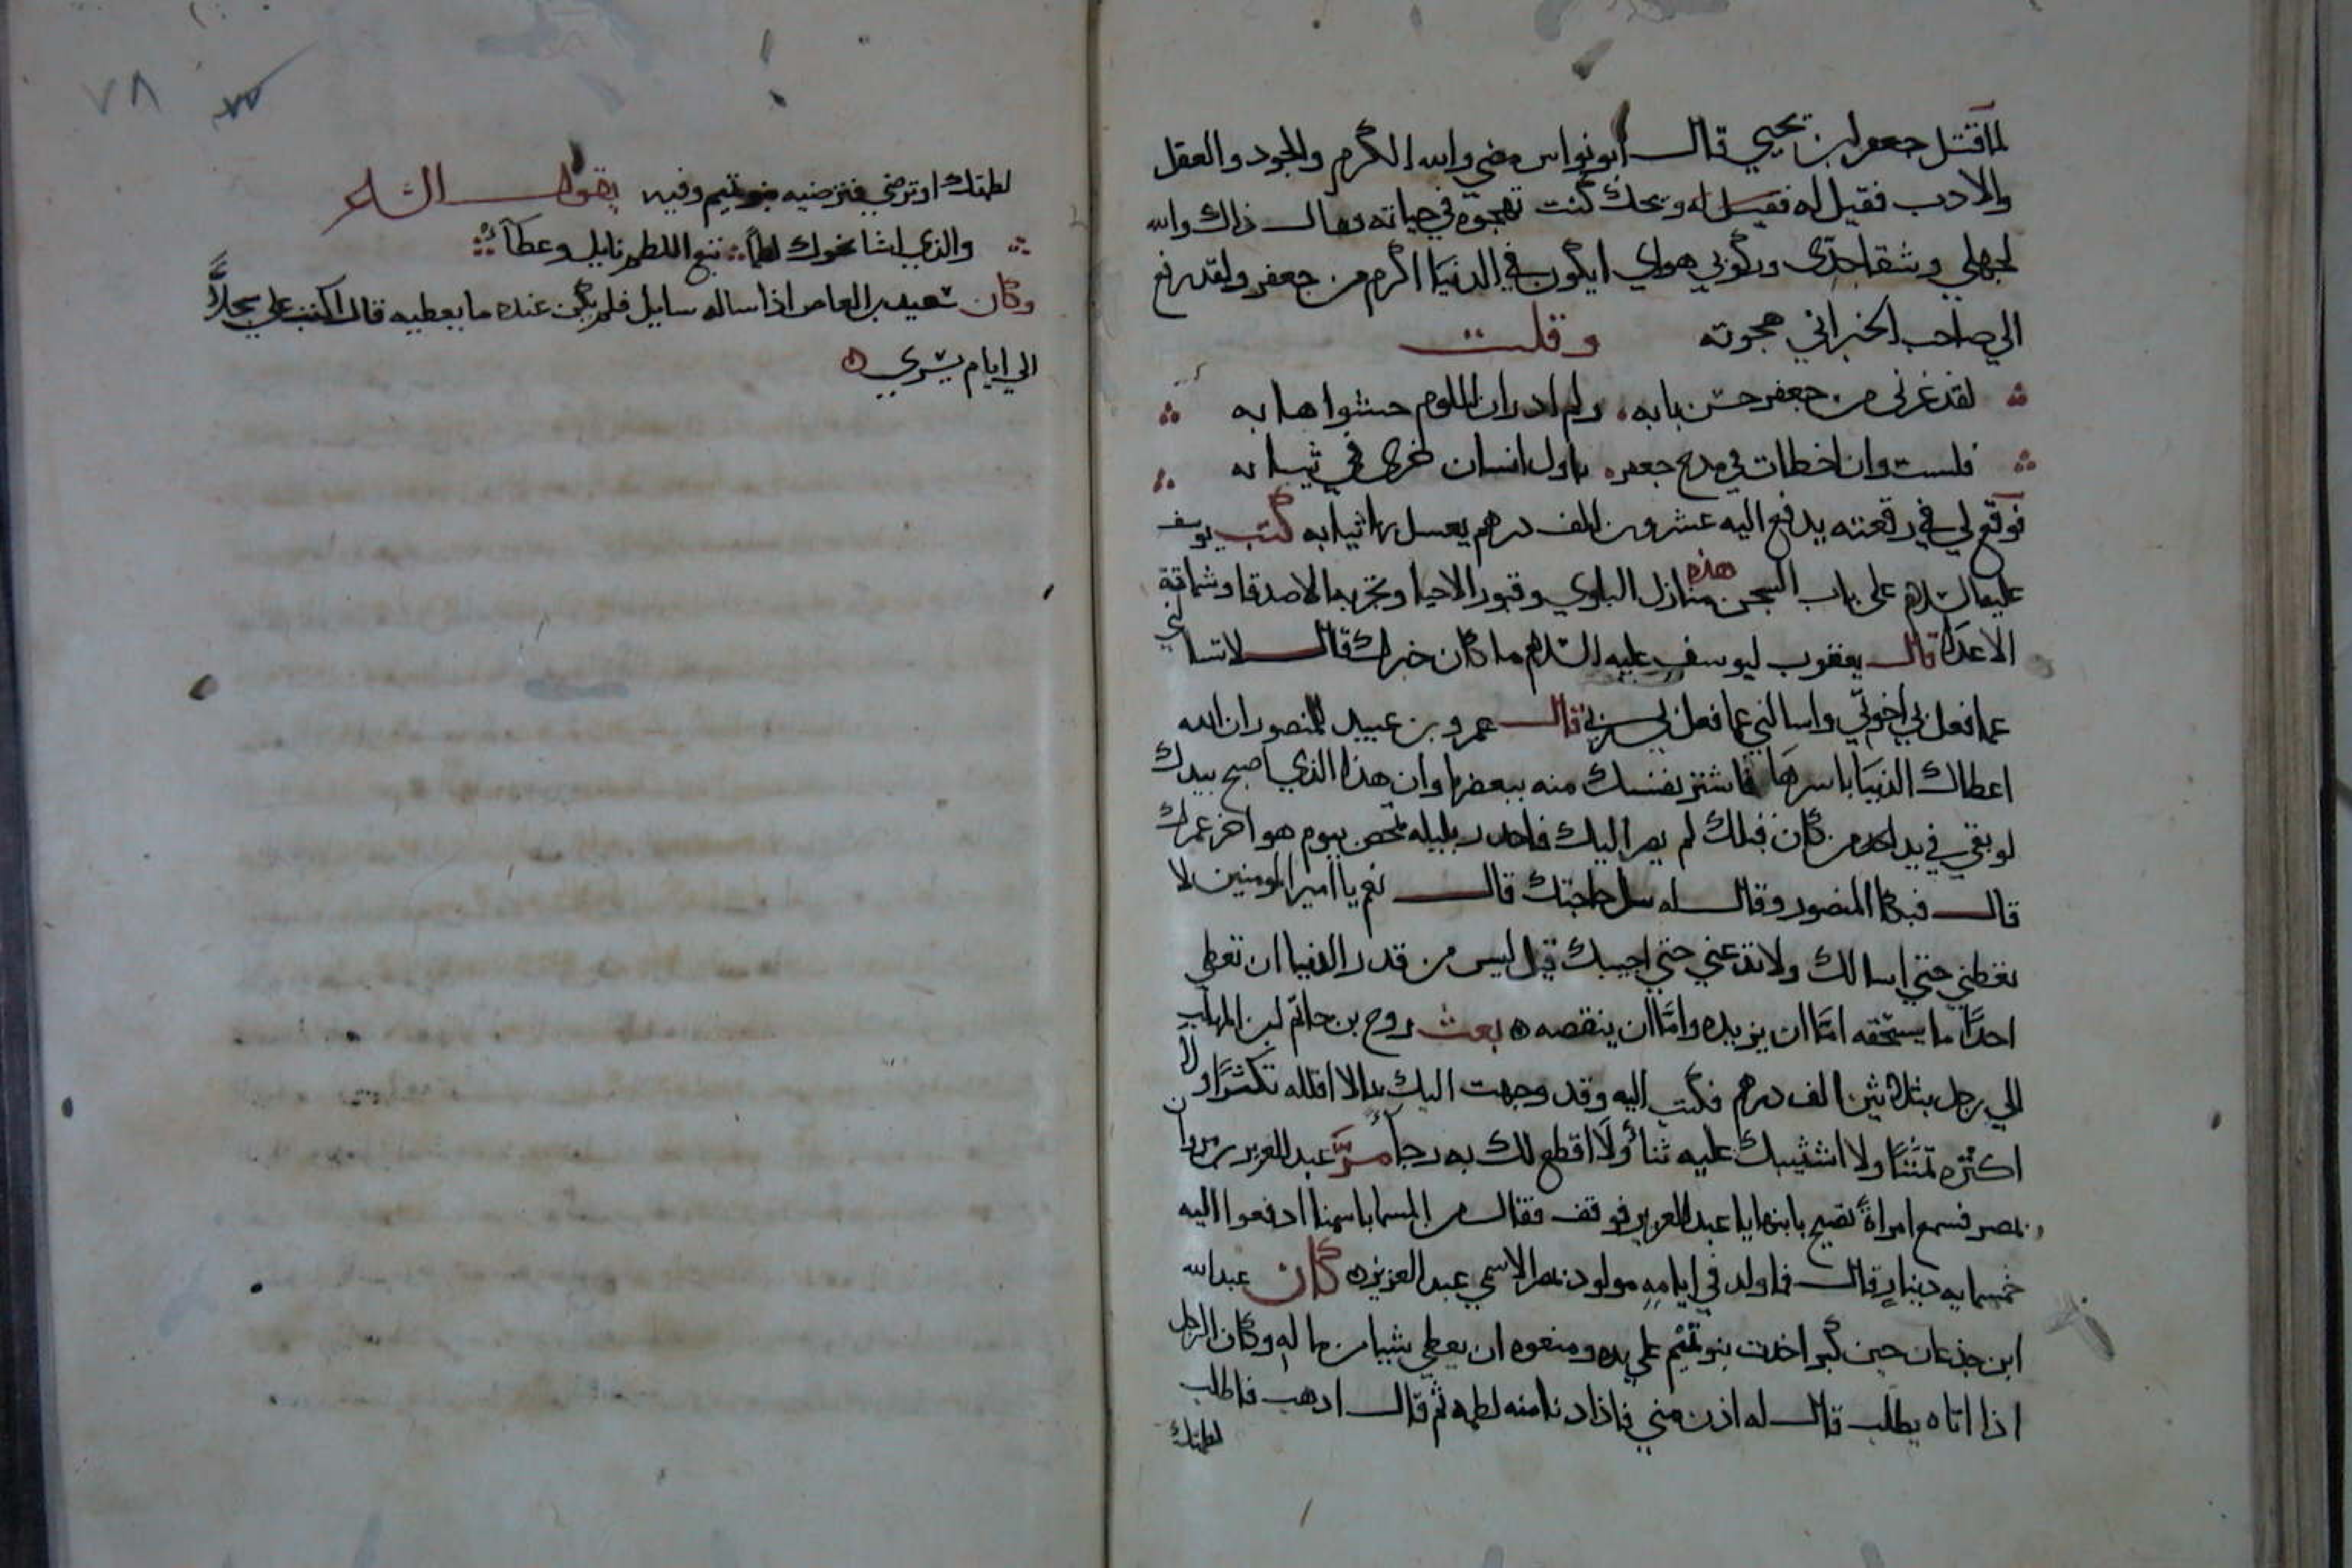 لما قتل جعفر ابن يحيي قال ابو نواس مضي والله الكرم والجود والعقل
والادب فقيل له فقيل له ويحك كنت تهجوه في حياته وقال ذاك والله
لجهلي وشقا جدي وركوبي هواي ايكون في الدنيا اكرم من جعفر ولقد رفع
الي صاحب الخبر اني هجوته وقلت
لقد غرني من جعفر حسن بابه ولم ادر ان اللوم حشو اهابه
فلست وان اخطات في مدح جعفر باول انسان خرى في ثيابه
فوقع لي في رقعته يدفع اليه عشرون الف درهم يغسل بها ثيابه كتب يوسف
عليه السلام على باب السجن هذه منازل البلوي وقبور الاحيا وتجربة الاصدقا وشماتة
الاعدا قال يعقوب ليوسف عليه السلام ما كان خبرك قال لا تسالني
عما فعل بي اخوتي واسالني عما فعل بي ربي قال عمرو بن عبيد للمنصور ان الله
اعطاك الدنيا باسرها فاشتر نفسك منه ببعضها وان هذا الذي اصبح بيدك
لو بقي في يد احد من كان قبلك لم يصر اليك فاحذر بليله تمخض بيوم هو اخر عمرك
قال فبكا المنصور وقال له سل حاجتك قال نعم يا امير المومنين لا
تعطني حتي اسالك ولا تدعني حتي اجيبك قيل ليس من قدر الدنيا ان تعطي
احدا ما يستحقه اما ان يزيده واما ان ينقصه بعث روح بن حاتم ابن المهلب
الي رجل بثلاثين الف درهم فكتب اليه وقد وجهت اليك بما لا اقلله تكثرا ولا
اكثره تمننا ولا استثيبك عليه ثنا ولا اقطع لك به رجا مر عبد العزيز بن مروان
بمصر فسمع امراة تصيح بابنها يا عبد العزيز فوقف فقال من المسما باسمنا ادفعوا اليه
خمسمايه دينار قال فما ولد في ايامه مولود بمصر الا سمي عبد العزيز كان عبد الله
ابن جذعان حين كبر اخذت بنو تميم علي يده ومنعوه ان يعطي شيا من ماله وكان الرجل
اذا اتاه يطلب قال له ادن مني فاذا دنا منه لطمه ثم قال اذهب فاطلب
لطمتك
٧٨
لطمتك او ترضي فترضيه بنو تميم وفيه يقول الشاعر
والذي اشا نحوك لطما تبع اللطم نايل وعطآء
وكان سعيد بن العاص اذا ساله سايل فلم يكن عنده ما يعطيه قال اكتب علي سجلا
الي ايام يسري